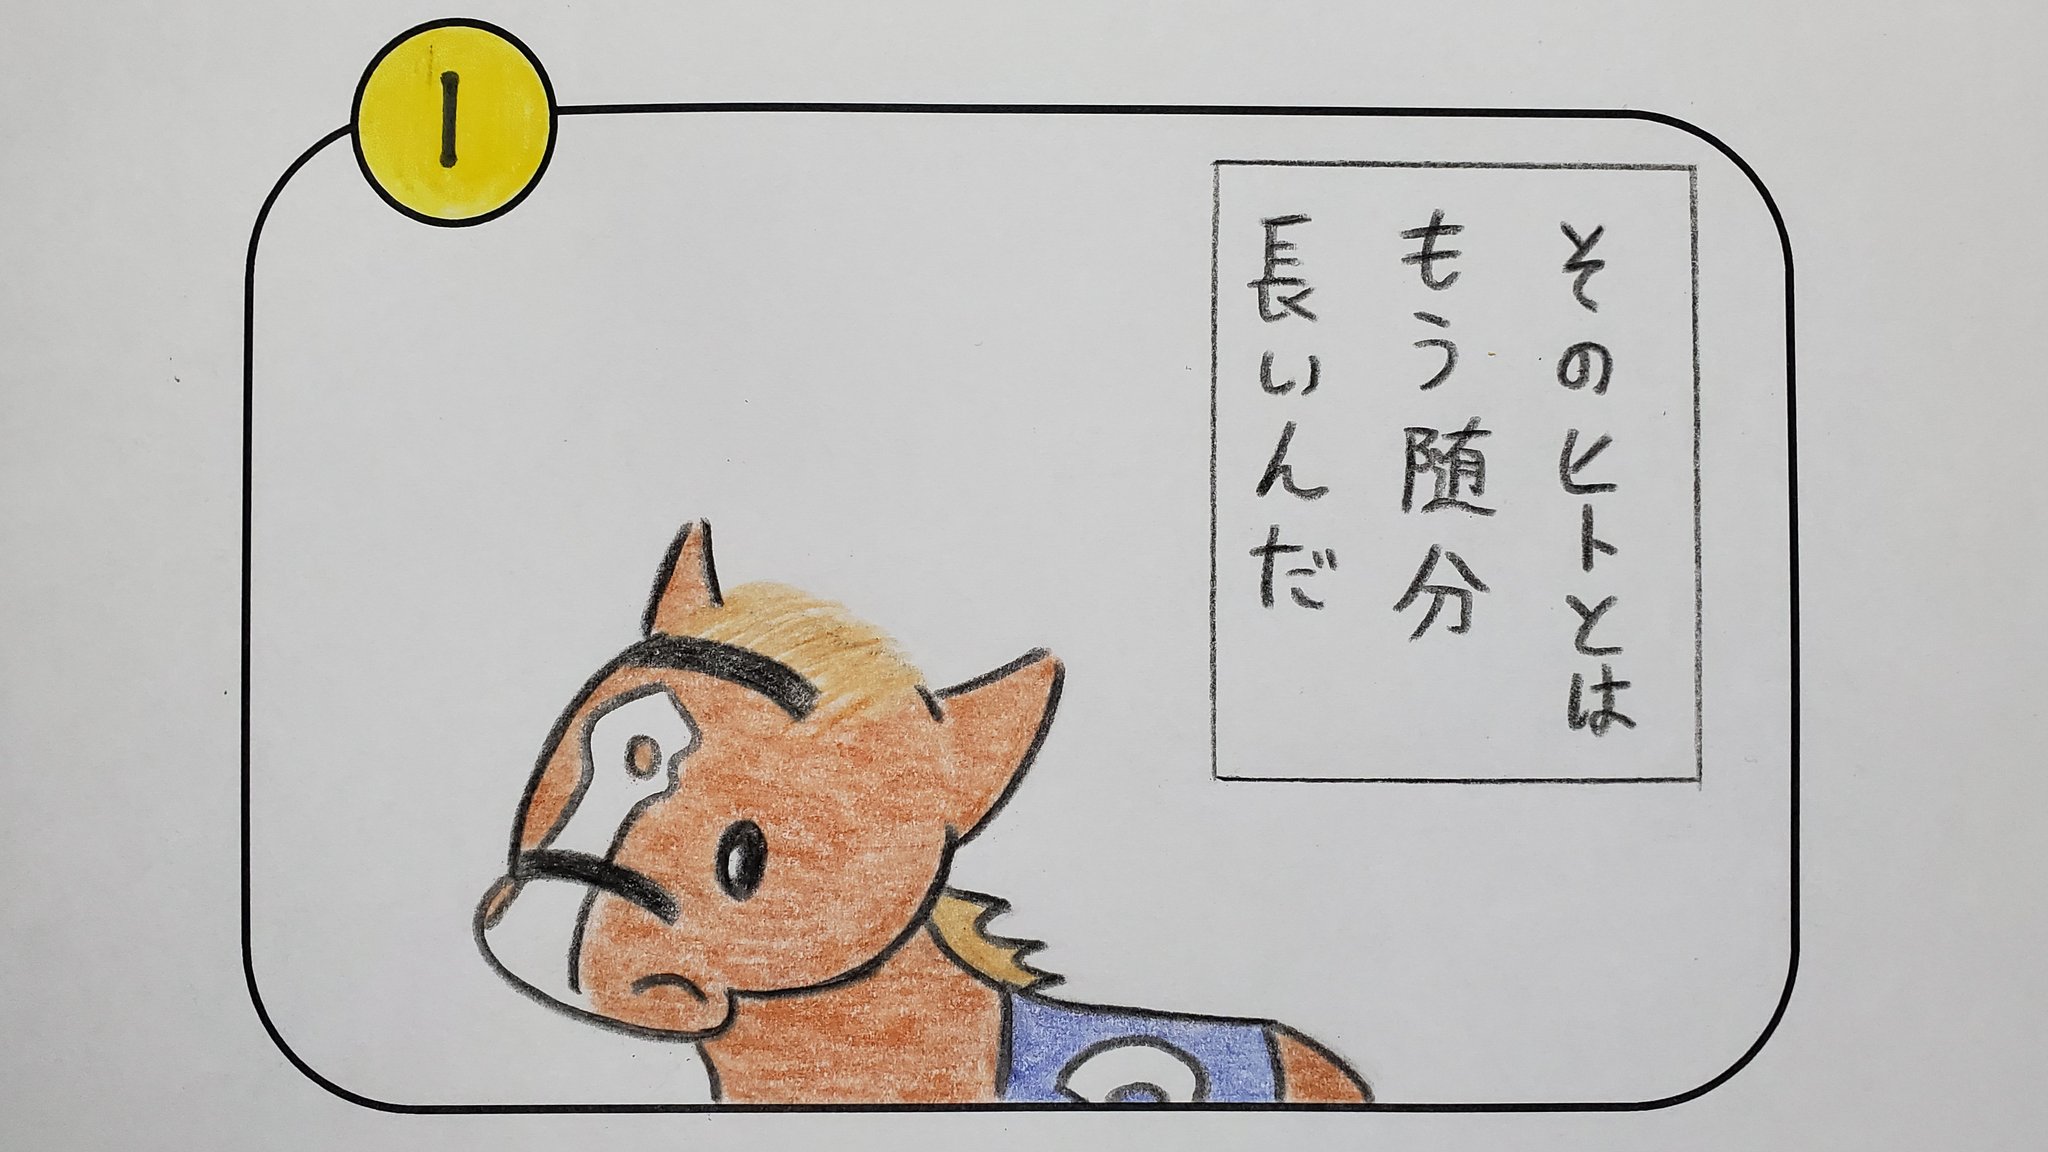 1
そのヒトとは
もう随分
長いんだ